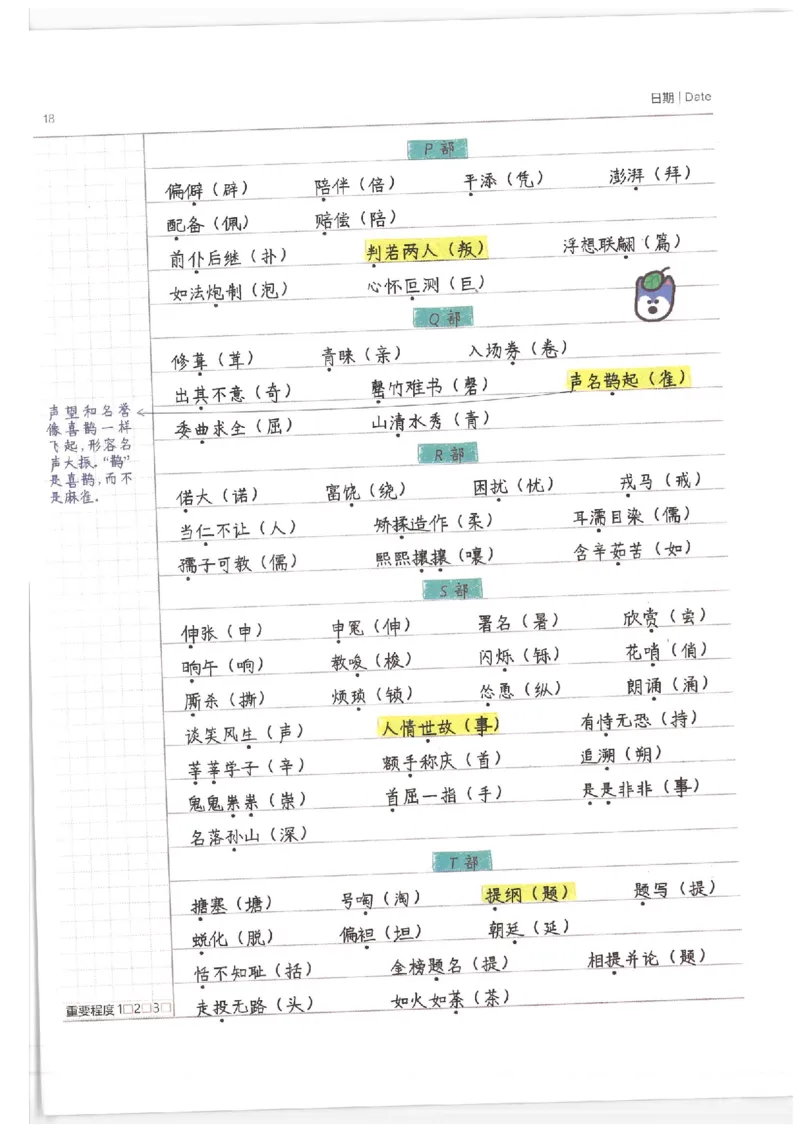 日期 | Date
18
P部
偏僻（辟） 陪伴（倍） 平添（凭） 澎湃（拜）
配备（佩） 赔偿（陪）
前仆后继（扑） 判若两人（叛） 浮想联翩（篇）
如法炮制（泡） 心怀叵测（巨）
Q部
修葺（茸） 青睐（亲） 入场券（卷）
出其不意（奇） 罄竹难书（磬） 声名鹊起（雀）
委曲求全（屈） 山清水秀（青）
声望和名誉
像喜鹊一样
飞起，形容名
声大振。“鹊”
是喜鹊，而不
是麻雀。
R部
偌大（诺） 富饶（绕） 困扰（忧） 戎马（戒）
当仁不让（人） 矫揉造作（柔） 耳濡目染（儒）
孺子可教（儒） 熙熙攘攘（嚷） 含辛茹苦（如）
S部
伸张（申） 申冤（伸） 署名（暑） 欣赏（尝）
晌午（响） 教唆（梭） 闪烁（铄） 花哨（俏）
厮杀（撕） 烦琐（锁） 怂恿（纵） 朗诵（涌）
谈笑风生（声） 人情世故（事） 有恃无恐（持）
莘莘学子（辛） 额手称庆（首） 追溯（朔）
鬼鬼祟祟（崇） 首屈一指（手） 是是非非（事）
名落孙山（深）
T部
搪塞（塘） 号啕（淘） 提纲（题） 题写（提）
蜕化（脱） 偏袒（坦） 朝廷（延）
恬不知耻（括） 金榜题名（提） 相提并论（题）
走投无路（头） 如火如荼（茶）
重要程度 1□2□3□